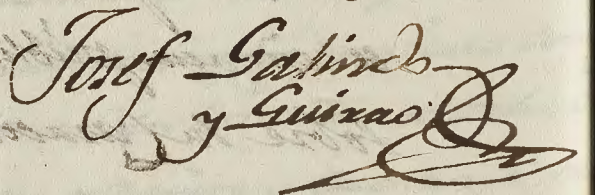 Josef Galindo
y Guirao